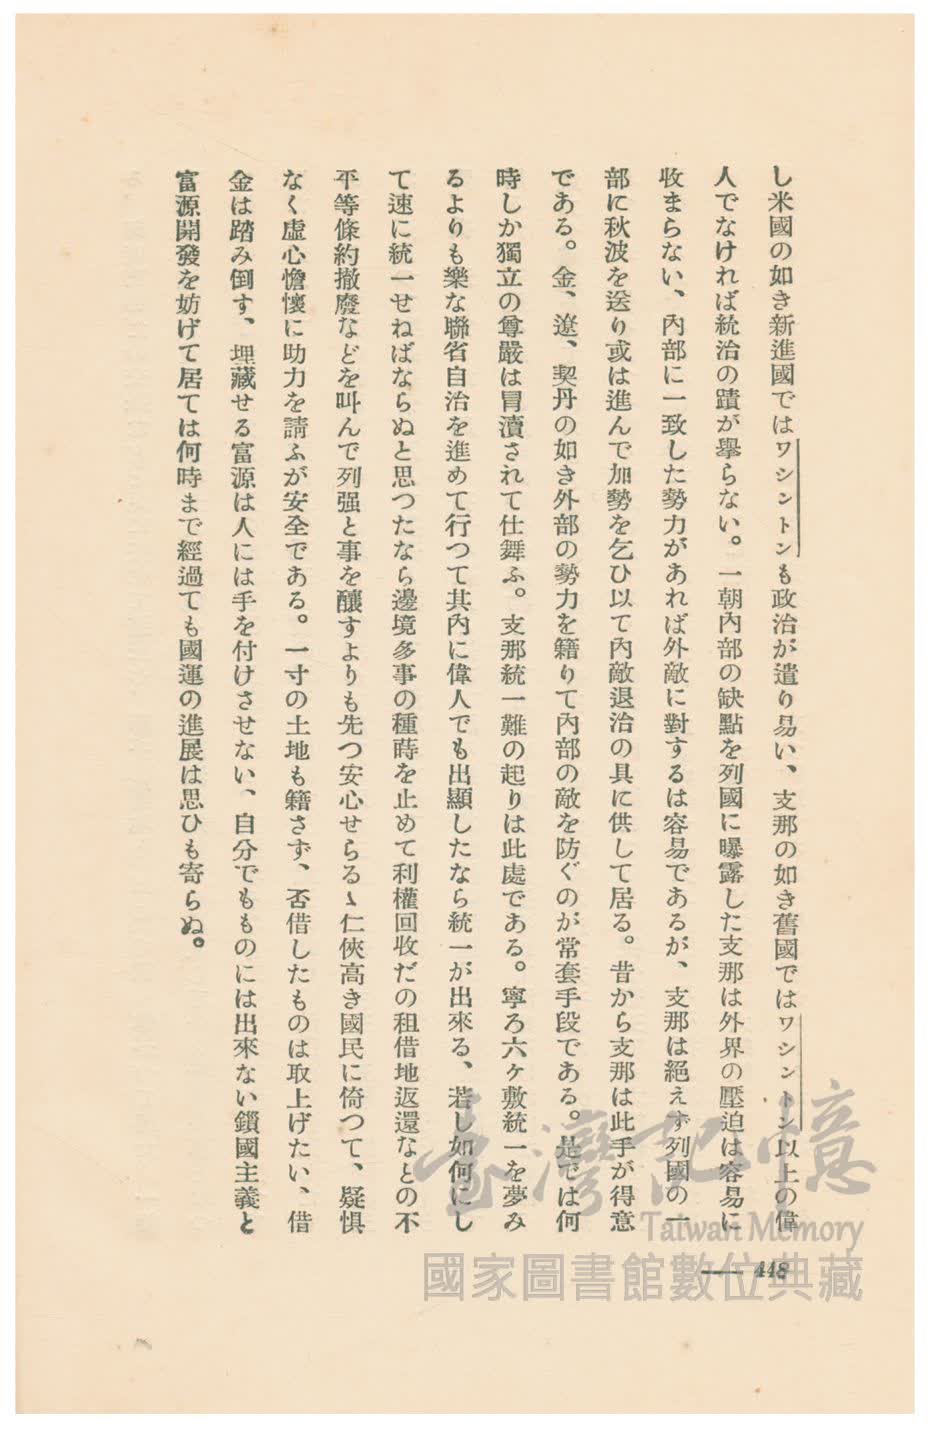 し米國の如き新進國ではワシントンも政治が遣り易い、支那の如き舊國ではワシントン以上の偉
人でなければ統治の蹟が擧らない。一朝內部の缺點を列國に曝露した支那は外界の壓迫は容易に
收まらない、內部に一致した勢力があれば外敵に對するは容易であるが、支那は絕えず列國の一
部に秋波を送り或は進んで加勢を乞ひ以て內敵退治の具に供して居る。昔から支那は此手が得意
である。金、遼、契丹の如き外部の勢力を籍りて內部の敵を防ぐのが常套手段である。是では何
時しか獨立の尊嚴は冒瀆されて仕舞ふ。支那統一難の起りは此處である。寧ろ六ヶ敷統一を夢み
るよりも樂な聯省自治を進めて行つて其內に偉人でも出顯したなら統一が出來る、若し如何にし
て速に統一せねばならぬと思つたなら邊境多事の種蒔を止めて利權回收だの租借地返還なとの不
平等條約撤廢などを叫んで列强と事を釀すよりも先つ安心せらるゝ仁俠高き國民に倚つて、疑惧
なく虛心憺懷に助力を請ふが安全である。一寸の土地も籍さず、否借したものは取上げたい、借
金は踏み倒す、埋藏せる富源は人には手を付けさせない、自分でもものには出來ない鎖國主義と
富源開發を妨げて居ては何時まで經過ても國運の進展は思ひも寄らぬ。
— 448
臺灣記憶
Taiwan Memory
國家圖書館數位典藏